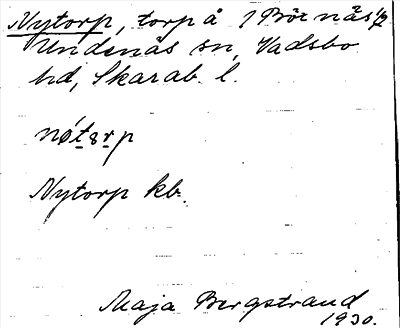 Nytorp, torp å 1 Börnäs 1/2
Undenäs sn, Vadsbo
hd, Skarab. l.
Nytorp kb.
Maja Bergstrand
1930.